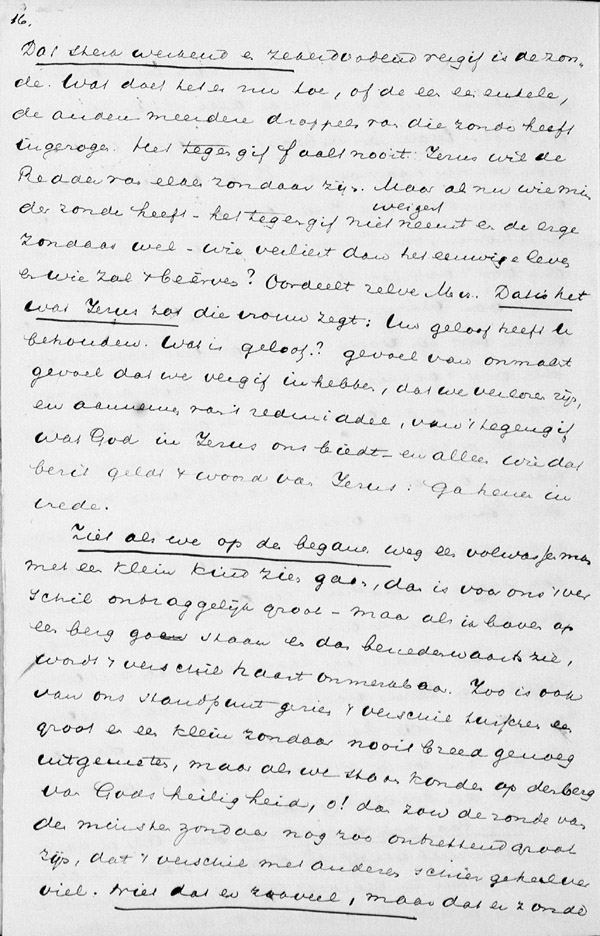 16.
Dat sterk werkend en zekerdodend vergif is de zon-
de. Wat doet het er nu toe, of de een een enkele,
de andere meerdere droppels van die zonde heeft
ingezogen. Het tegengif faalt nooit. Jezus wil de
Redder van elken zondaar zijn. Maar al nu wie min
der zonde heeft - het tegengif niet neemt weigert en de erge
zondaar wel - wie verliest dan het eeuwige leven
en wie zal 't beërven? Oordeelt zelve M.m. Dat is het
wat Jezus tot die vrouw zegt: Uw geloof heeft u
behouden. Wat is geloof? gevoel van onmacht
gevoel dat we vergif in hebben, dat we verloren zijn,
en aannemen van 't redmiddel, van 't tegengif,
wat God in Jezus ons biedt - en allen wie dat
bezit geldt 't woord van Jezus: Ga henen in
vrede.
Ziet als we op de begane weg een volwassen man
met een klein kind zien gaan, dan is voor ons 't ver
schil ontzaggelijk groot - maar als ik boven op
een berg staan en dan benedenwaarts zie,
wordt 't verschil haast onmerkbaar. Zoo is ook
van ons standpunt gezien 't verschil tusschen een
groot en een klein zondaar nooit breed genoeg
uitgemeten, maar als we staan konden op den berg
van Gods heiligheid, o! dan zou de zonde van
de minsten zondaar nog zoo ontzettend groot
zijn, dat 't verschil met anderen schier geheel ver
viel. Niet dat er zooveel, maar dat er zonde